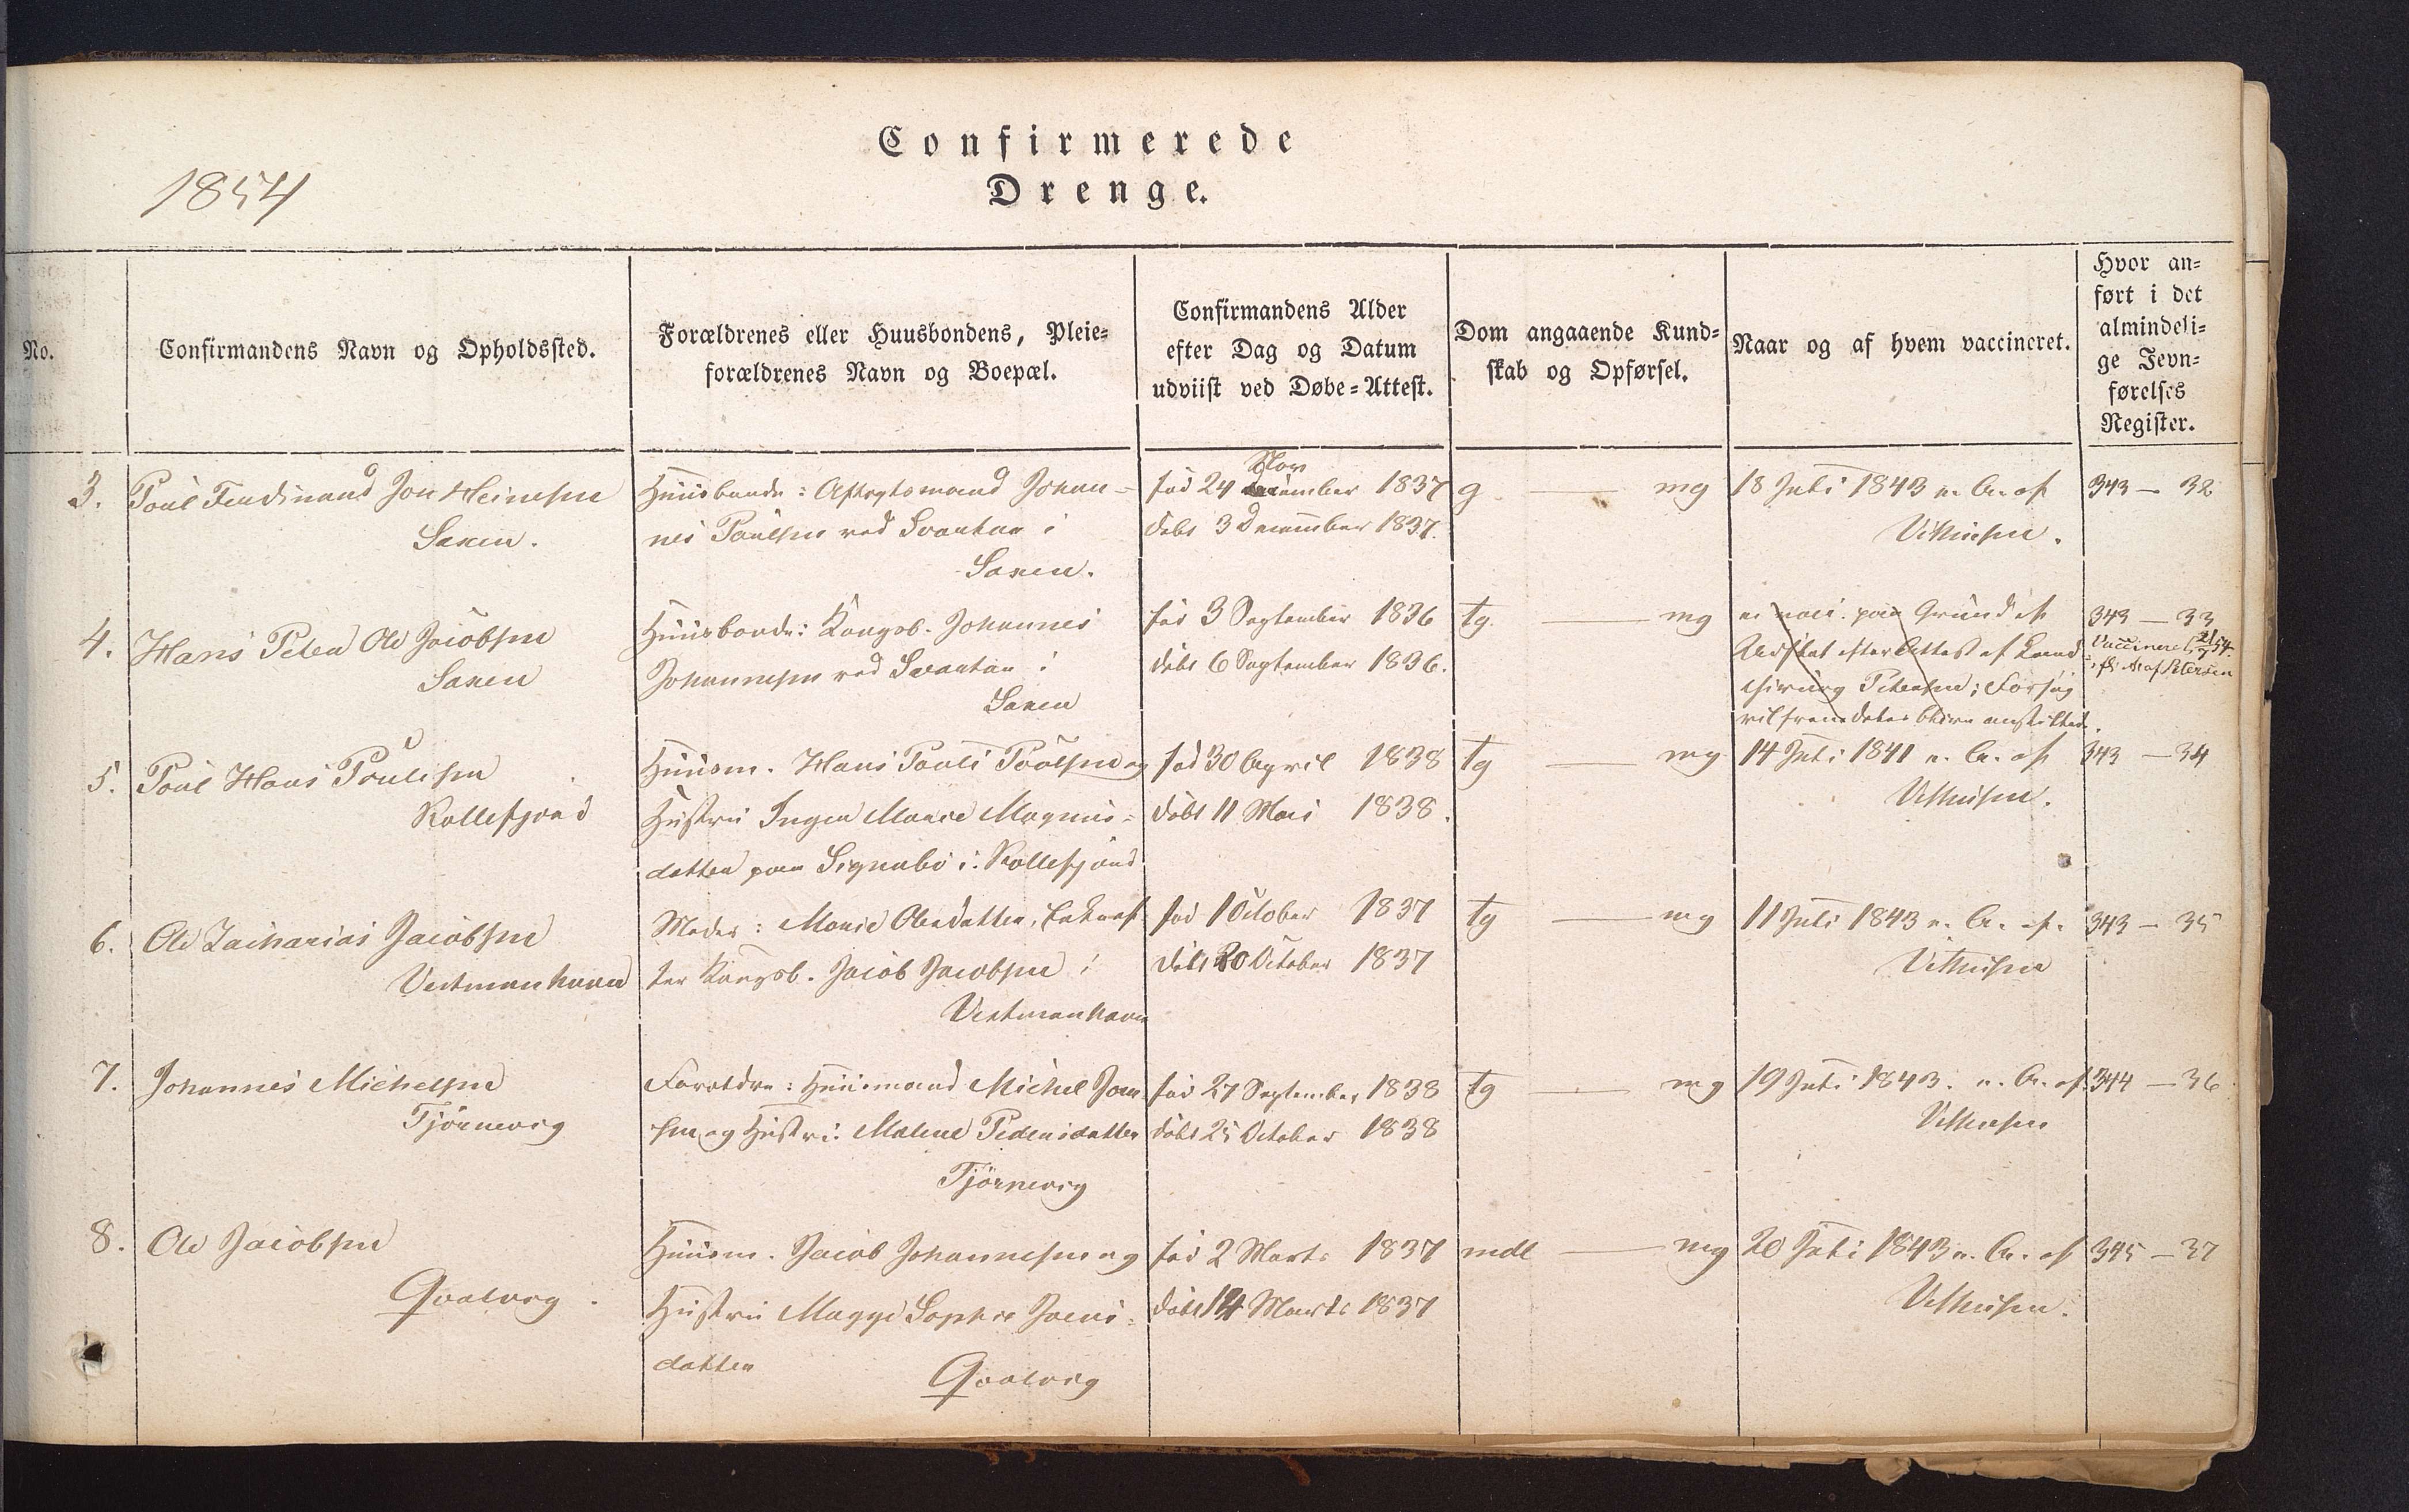 Confirmerede
Drenge.
1854
No.
Confirmandens Navn og Opholdssted.
Forældrenes eller Huusbondens, Pleie=
forældrenes Navn og Boepæl.
Confirmandens Alder
efter Dag og Datum
udviist ved Døbe=Attest.
Dom angaaende Kund=
skab og Opførsel.
Naar og af hvem vaccineret.
Hvor an=
ført i det
almindeli=
ge Jevn=
førelses
Register.
3. Poul Ferdinand Jon Heinesen
Saxen.
Huusbonde: Aftægtsmand Johan=
nes Poulsen ved Svartaa i
Saxen.
Nov
fød 24 December 1837
døbt 3 December 1837.
g — mg
18 Juli 1843 n. A. af
343 — 32
4. Hans Peter Ole Jacobsen
Saxen
Huusbonde: Kongsb. Johannes
Johannesen ved Svartaa i
Saxen
fød 3 September 1836
døbt 6 September 1836.
tg. — mg
ei vacc. paa Grund af
Udslæt efter Attest af Land
chirurg Petersen; Forsøg
vil fremdeles blive anstillet.
343 — 33
Vaccineret
af Petersen
5. Poul Hans Poulsen
Kollefjord
Huusm. Hans Pauli Poulsen og
Hustru Inger Marie Magnus=
datter paa Signabø i Kollefjord
fød 30 April 1838
døbt 11 Mai 1838.
tg — mg
14 Juli 1841 n. A. af
343 — 34
6. Ole Zacharias Jacobsen
Vestmanhavn
Moder: Marie Olesdatter, Enke ef
ter Kongsb. Jacob Jacobsen i
Vestmanhavn
fød 1 October 1837
døbt 20 October 1837
tg — mg
11 Juli 1843 n. A. af.
343 — 35
7. Johannes Michelsen
Tjørnevig
Forældre: Huusmand Michel Joen
sen og Hustru: Malene Pedersdatter
Tjørnevig
fød 27 September 1838
døbt 25 October 1838
tg — mg
19 Juli 1843. n. A. af
344 — 36
8. Ole Jacobsen
Qvalvig.
Huusm. Jacob Johannesen og
Hustru Magge Sophie Joens=
datter
Qvalvig
fød 2 Marts 1837
døbt 14 Marts 1837
mdl — mg
20 Juli 1843 n. A. af
345 — 37